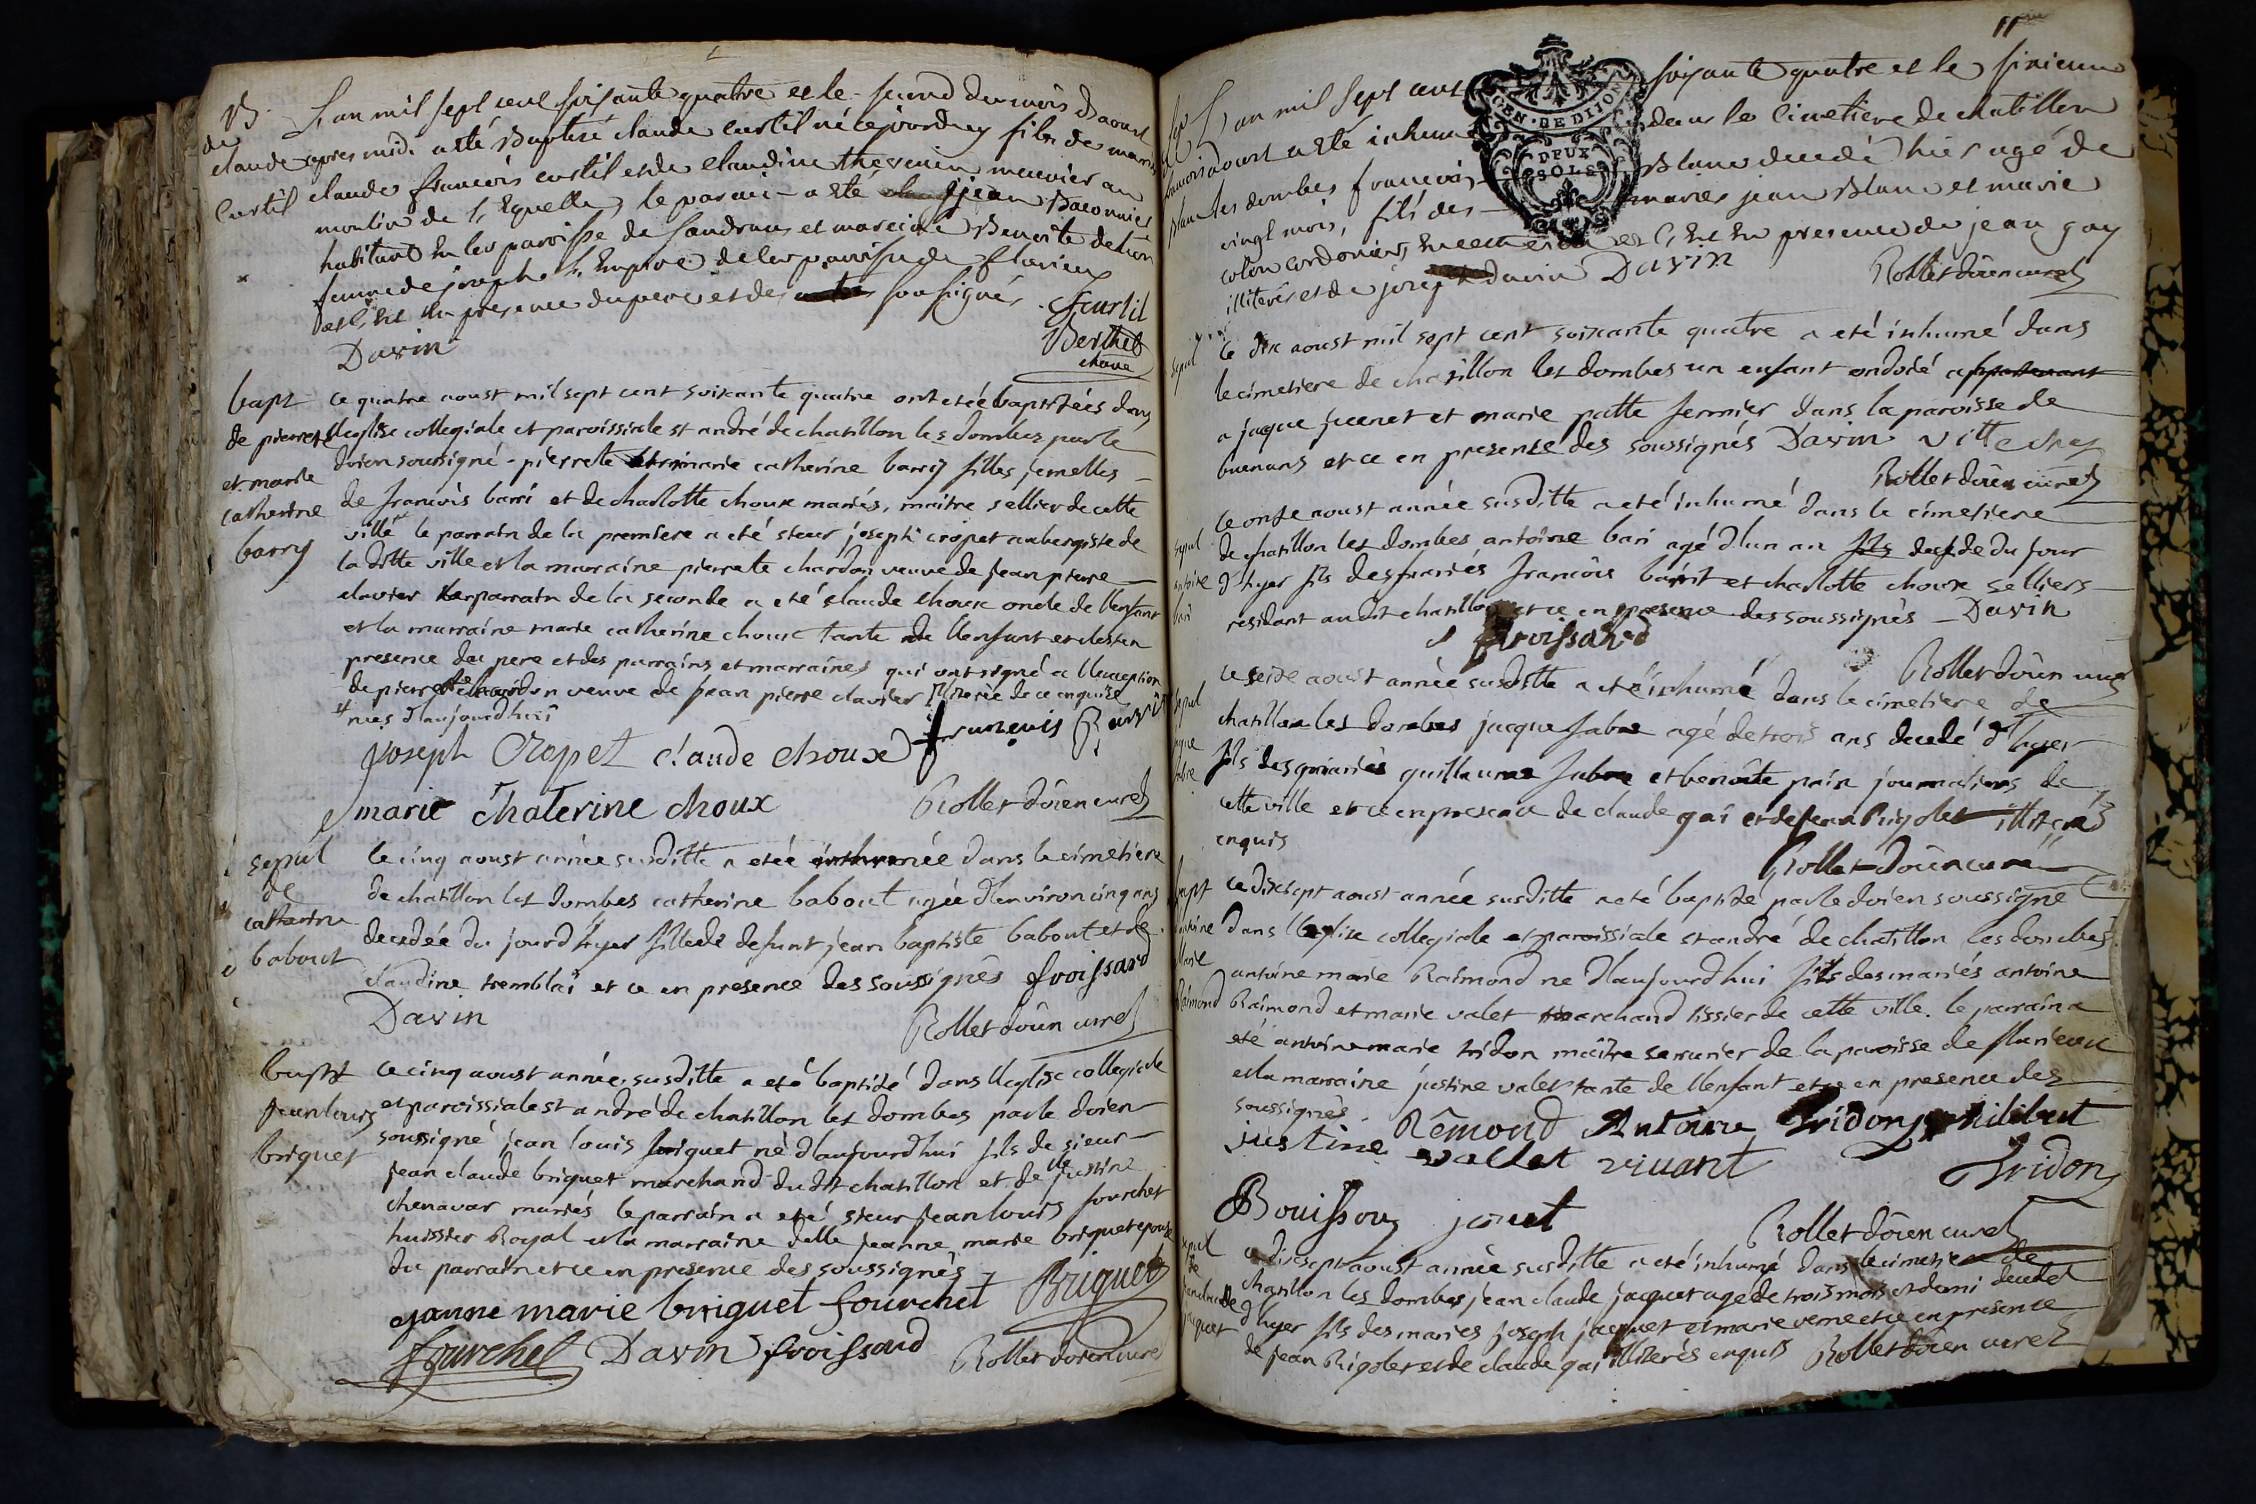 B.
de
claude
Curtil
L'an mil sept cent soixante quatre et le second du mois d'aoust
apres midi a été Baptisé claude curtil né cejourduy fils de maitre
claude francois curtil et de claudine thevenin meunier au
moulin de l'Equelle, le parain a été jean Baconnier
habitant en la paroisse de Sandrans et maraine Benoite
femme de joseph de la paroisse de flurieux
et ce en presence du pere et des sous signés Jcurtil
Davin
Berthet
bapt
de pierrette
et marie
catherine
barry
ce quatre aoust mil sept cent soixante quatre ont eteé baptisées dans
l'eglise collegiale et paroissiale st andré de chatillon les dombes par le
doien soussigné - pierrete et marie catherine barry filles jemelles
de francois barri et de charlotte choux mariés, maitre sellier de cette
ville le parrain de la premiere a eté sieur joseph cropet aubergiste de
la ditte ville et la marraine pierrete chardon veuve de jean pierre
clavier le parrain de la seconde a eté claude choux oncle de l'enfant
et la marraine marie catherine choux tante de l'enfant et ce en
presence du pere et des parrains et marraines qui ont signé a l'exception
de pierrete chardon veuve de jean pierre clavier illiterée de ce enquise
nées d'aujourd'hui
joseph Cropet claude choux francois Barri
marie chaterine choux Rollet doien curé
sepul
de
catherine
babout
le cinq aoust année susditte a eteé inhumée dans le cimetiere
de chatillon les dombes catherine babout agée d'environ cinq ans
decedée du jourd'hyer fille de defunt jean baptiste babout et de
claudine tremblai et ce en presence des soussignés froissard
Davin Rollet doien curé
bapt
jean louis
briquet
ce cinq aoust année susditte a eté baptisé dans l'eglise collegiale
et paroissiale st andré de chatillon les dombes par le doien
soussigné jean louis briquet né d'aujourd'hui fils de sieur
jean claude briquet marchand du dit chatillon et de justine
chenavar mariés le parrain a eté sieur jean louis fourchet
huissier Royal et la marraine delle jeanne marie briquet epouse
du parrain et ce en presence des soussignés Briquet
janne marie briquet fourchet
fourchet Davin froissard Rollet doien curé
11
L'an mil sept cent soixante quatre et le sixieme
GEN. DE DIJON
DEUX
SOLS
d'aoust a été inhumé dans le cimetiere de chatillon
les dombes francois Blanc decedé hier agé de
vingt mois, fils des mariés jean Blanc et marie
colon cordonier, et ce en presence de jean gay
illiteré et de joseph davin Davin Rollet doien curé
sepul
ce dix aoust mil sept cent soixante quatre a eté inhumé dans
le cimetiere de chatillon les dombes un enfant ondoié appartenant
a jaque et marie patte fermier dans la paroisse de
buenans et ce en presence des soussignés Davin
Rollet doien curé
sepul
antoine
bari
ce onse aoust année susditte a eté inhumé dans le cimetiere
de chatillon les dombes antoine bari agé d'un an decede du jour
d'hyer fils des mariés francois barri et charlotte choux selliers
residant au dit chatillon et ce en presence des soussignés Davin
froissard
Rollet doien curé
sepul
jaque
fabre
ce seise aoust année susditte a eté inhumé dans le cimetiere de
chatillon les dombes jacque fabre agé de trois ans decedé d'hyer
fils des mariés guillaume fabre et benoite pain journaliers de
cette ville et ce en presence de claude gai et de jean Rigolet illiterés
enquis
Rollet doien curé
bapt
antoine
marie
Raimond
ce dixsept aoust année susditte a eté baptisé par le doien soussigné
dans l'eglise collegiale et paroissiale st andré de chatillon les dombes
antoine marie Raimond né d'aujourd'hui fils des mariés antoine
Raimond et marie valet marchand tissier de cette ville. le parrain a
eté antoine marie tridon maitre serrurier de la paroisse de flurieux
et la marraine justine valet tante de l'enfant et ce en presence des
soussignés Rêmond Antoine Tridon philibert
justine vallet vivant Tridon
Bouisson jonet Rollet doien curé
sepul
de
jean claude
jaquet
ce dixsept aoust année susditte a eté inhumé dans le cimetiere de
chatillon les dombes jean claude jacquet agé de trois mois et demi decedé
d'hyer fils des mariés joseph jacquet et marie verne et ce en presence
de jean Rigolet et de claude gai illiterés enquis Rollet doien curé